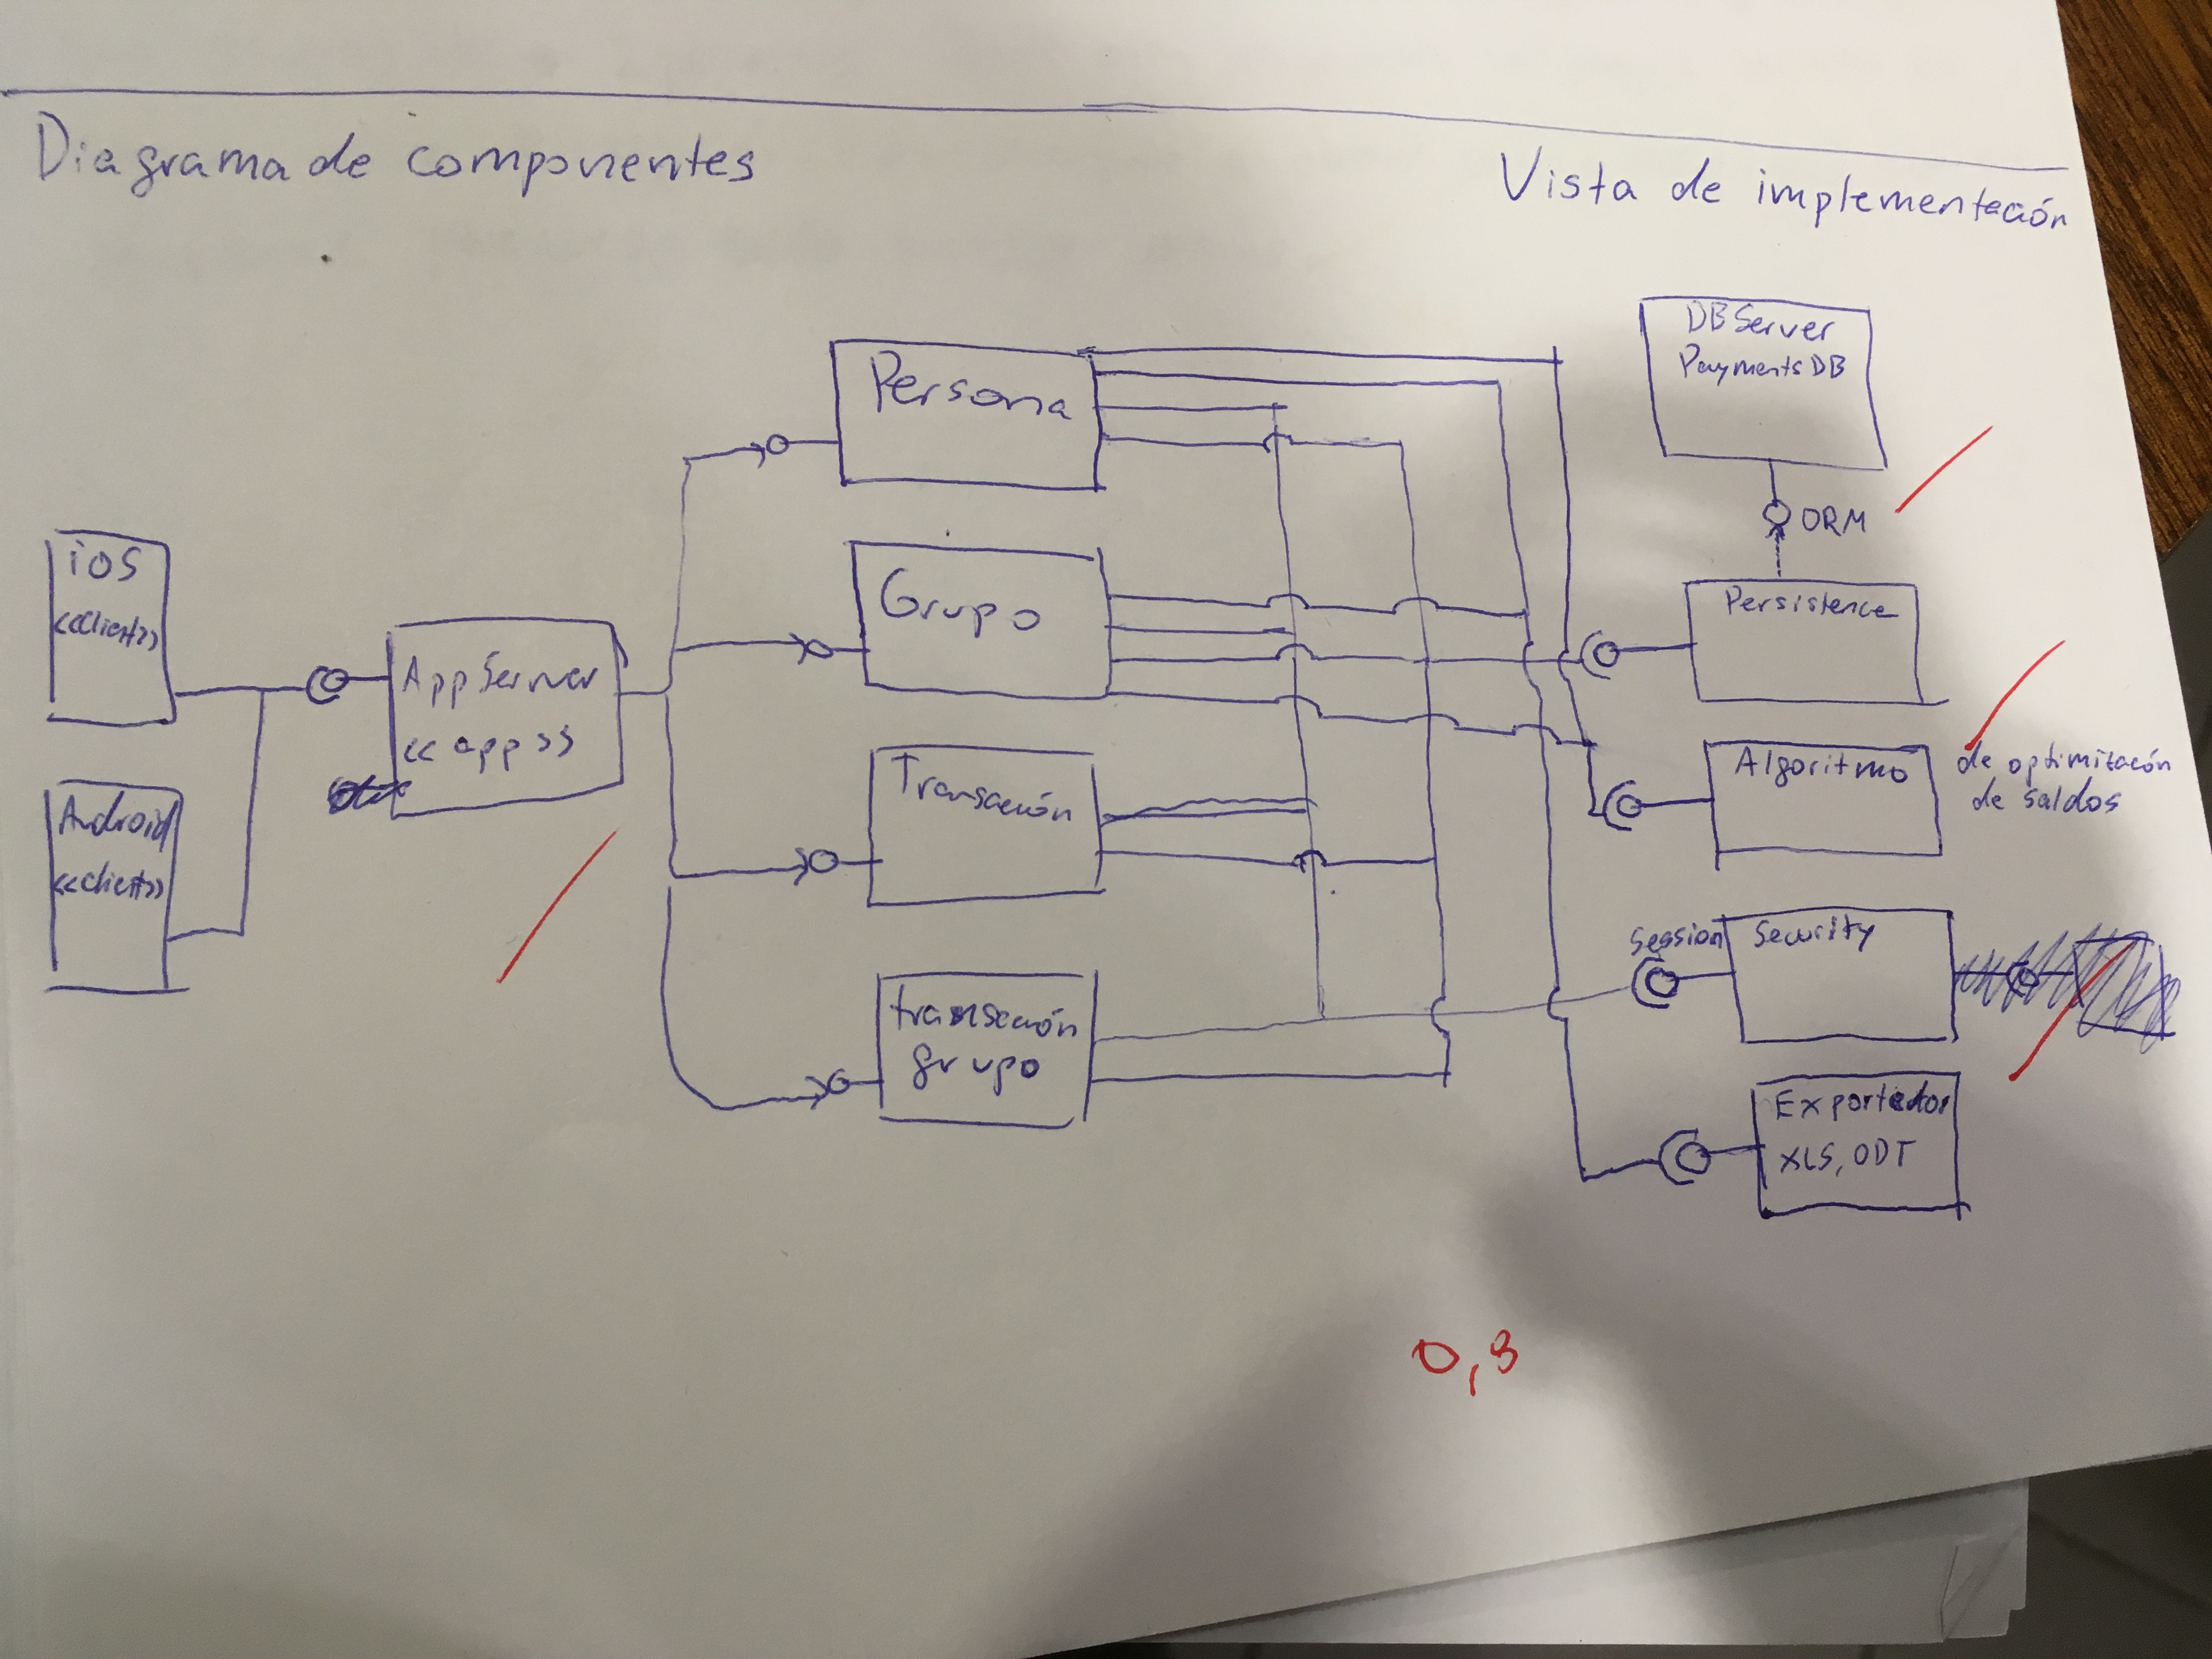 Diagrama de componentes
Vista de implementación
iOS
<<cliente>>
Android
<<cliente>>
AppServer
<<app>>
Persona
Grupo
Transacción
transacción
grupo
DBServer
PaymentsDB
ORM
Persistence
Algoritmo
de optimitación
de saldos
Session
Security
Exportador
XLS, ODT